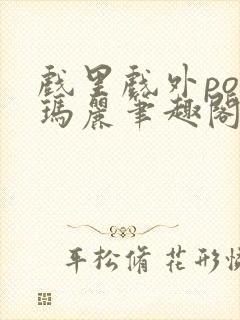 戲里戲外po
瑪麗笔趣閣
平松脩 花形